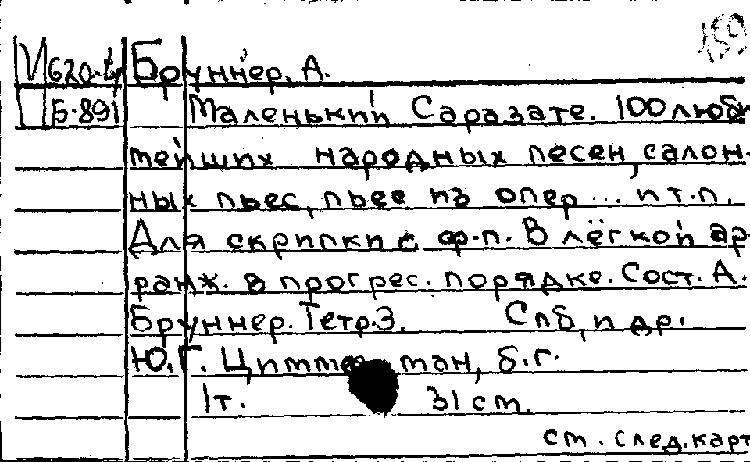 159
И620-4р Бруннер. А.
Б-891 Маленький Саразате. 100 любв
тейших народных песен, салон-
ных пьес, пьес из опер... и т.п.
Для скрипки с ф.п. В лёгкой ар-
ранж. в прогрес. порядке. Сост. А.
Бруннер. Тетр.3. Спб, и др.
Ю.Г. Циммерман, б.г.
1т. 31 cm.
см. след.карт